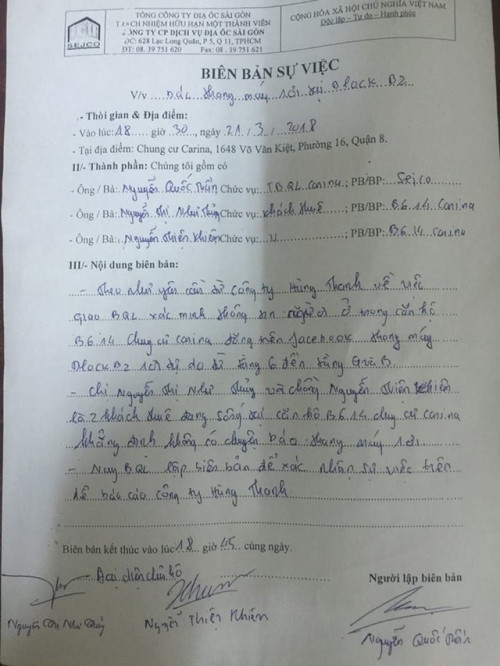 TỔNG CÔNG TY ĐỊA ỐC SÀI GÒN
TRÁCH NHIỆM HỮU HẠN MỘT THÀNH VIÊN
CÔNG TY CP DỊCH VỤ ĐỊA ỐC SÀI GÒN
ĐC: 628 Lạc Long Quân, P 5, Q 11, TPHCM
ĐT: 08. 39 751 620 Fax: 08. 39 751 621
SEJCO
CỘNG HÒA XÃ HỘI CHỦ NGHĨA VIỆT NAM
Độc lập – Tự do – Hạnh phúc
BIÊN BẢN SỰ VIỆC
V/v thang máy rơi tại Block B2
- Thời gian & Địa điểm:
- Vào lúc: 18 giờ 30, ngày 21/3/2018
- Tại địa điểm: Chung cư Carina, 1648 Võ Văn Kiệt, Phường 16, Quận 8.
II/- Thành phần: Chúng tôi gồm có
- Ông / Bà: Nguyễn Quốc Tuấn Chức vụ: T.BQL Carina; PB/BP: Sejco
- Ông / Bà: Nguyễn Thị Như Thủy Chức vụ: Khách thuê; PB/BP: B6.14 Carina
- Ông / Bà: Nguyễn Thiện Khiêm Chức vụ: ; PB/BP: B6.14 Carina
III/- Nội dung biên bản:
- Theo như yêu cầu từ công ty Hùng Thanh về việc
giao BQL xác minh thông tin người ở trong căn hộ
B6.14 chung cư Carina đăng trên facebook thang máy
Block B2 rơi tự do từ tầng 6 đến tầng
- Chị Nguyễn Thị Như Thủy và chồng Nguyễn Thiện Khiêm
là 2 khách thuê đang sống tại căn hộ B6.14 chung cư Carina
khẳng định không có chuyện báo thang máy rơi
- Nay BQL lập biên bản để xác nhận sự việc trên
để báo cáo công ty Hùng Thanh
Biên bản kết thúc vào lúc 18 giờ 45 cùng ngày.
- Đại diện căn hộ
Người lập biên bản
Nguyễn Thị Như Thủy
Nguyễn Thiện Khiêm
Nguyễn Quốc Tuấn